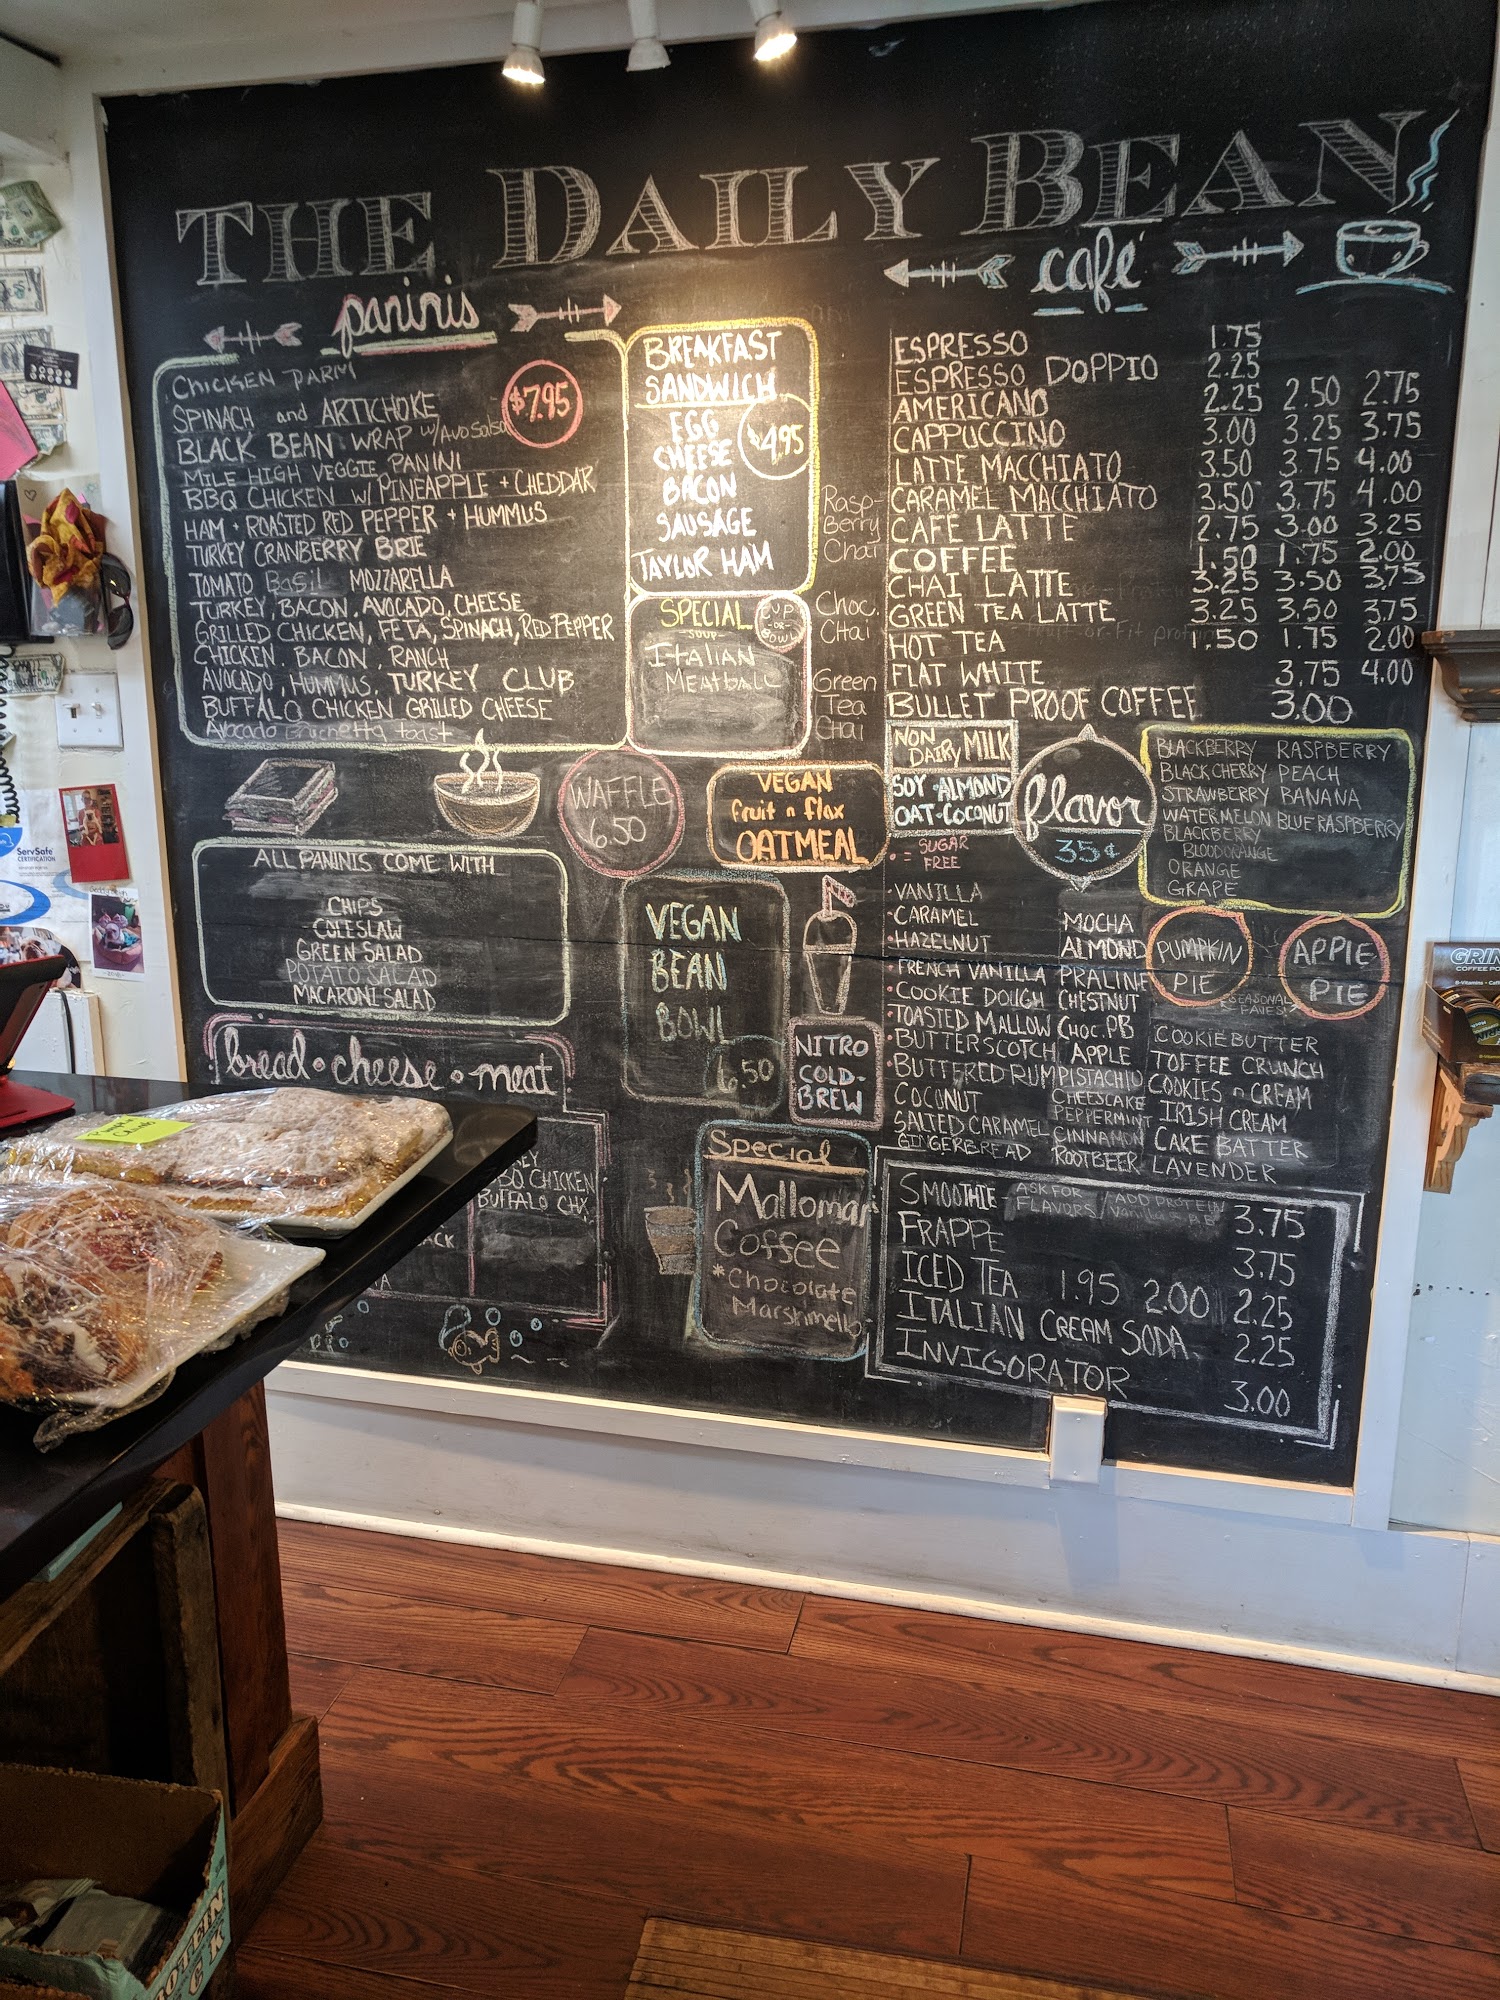 THE DAILY BEAN
paninis
CHICKEN PARM
$7.95
SPINACH and ARTICHOKE
BLACK BEAN WRAP w/Avo Salsa
MILE HIGH VEGGIE PANINI
BBQ CHICKEN w/ PINEAPPLE + CHEDDAR
HAM + ROASTED RED PEPPER + HUMMUS
TURKEY CRANBERRY BRIE
TOMATO Basil MOZZARELLA
TURKEY, BACON, AVOCADO, CHEESE
GRILLED CHICKEN, FETA, SPINACH, RED PEPPER
CHICKEN, BACON, RANCH
AVOCADO, HUMMUS, TURKEY CLUB
BUFFALO CHICKEN GRILLED CHEESE
Avocado Bruchetta toast
BREAKFAST
SANDWICH
$4.95
EGG
CHEESE
BACON
SAUSAGE
TAYLOR HAM
SPECIAL
SOUP
CUP
-OR-
BOWL
Italian
MEATBALL
Rasp-
Berry
Chai
Choc.
Chai
Green
Tea
Chai
café
ESPRESSO 1.75
ESPRESSO DOPPIO 2.25
AMERICANO 2.25 2.50 2.75
CAPPUCCINO 3.00 3.25 3.75
LATTE MACCHIATO 3.50 3.75 4.00
CARAMEL MACCHIATO 3.50 3.75 4.00
CAFÉ LATTE 2.75 3.00 3.25
COFFEE 1.50 1.75 2.00
CHAI LATTE 3.25 3.50 3.75
GREEN TEA LATTE 3.25 3.50 3.75
HOT TEA 1.50 1.75 2.00
FLAT WHITE 3.75 4.00
BULLET PROOF COFFEE 3.00
WAFFLE
6.50
VEGAN
fruit n flax
OATMEAL
NON
DAIRY MILK
SOY · ALMOND
OAT · COCONUT
• = SUGAR
FREE
flavor
35¢
BLACKBERRY RASPBERRY
BLACK CHERRY PEACH
STRAWBERRY BANANA
WATERMELON BLUE RASPBERRY
BLACKBERRY
BLOOD ORANGE
ORANGE
GRAPE
ALL PANINIS COME WITH
CHIPS
COLESLAW
GREEN SALAD
POTATO SALAD
MACARONI SALAD
VEGAN
BEAN
BOWL
6.50
NITRO
COLD-
BREW
• VANILLA
• CARAMEL
• HAZELNUT
• FRENCH VANILLA
• COOKIE DOUGH
• TOASTED MALLOW
• BUTTERSCOTCH
• BUTTERED RUM
COCONUT
SALTED CARAMEL
GINGERBREAD
MOCHA
ALMOND
PRALINE
CHESTNUT
CHOC. PB
APPLE
PISTACHIO
CHEESCAKE
PEPPERMINT
CINNAMON
ROOTBEER
PUMPKIN
PIE
APPLE
PIE
SEASONAL
FAVES
COOKIE BUTTER
TOFFEE CRUNCH
COOKIES n CREAM
IRISH CREAM
CAKE BATTER
LAVENDER
bread • cheese • meat
CHICKEN
BUFFALO CHX
Special
Mallomar
Coffee
*Chocolate
Marshmello
SMOOTHIE - ASK FOR FLAVORS / ADD PROTEIN 3.75
FRAPPE 3.75
ICED TEA 1.95 2.00 2.25
ITALIAN CREAM SODA 2.25
INVIGORATOR 3.00
ServSafe
CERTIFICATION
GRIN
COFFEE PO